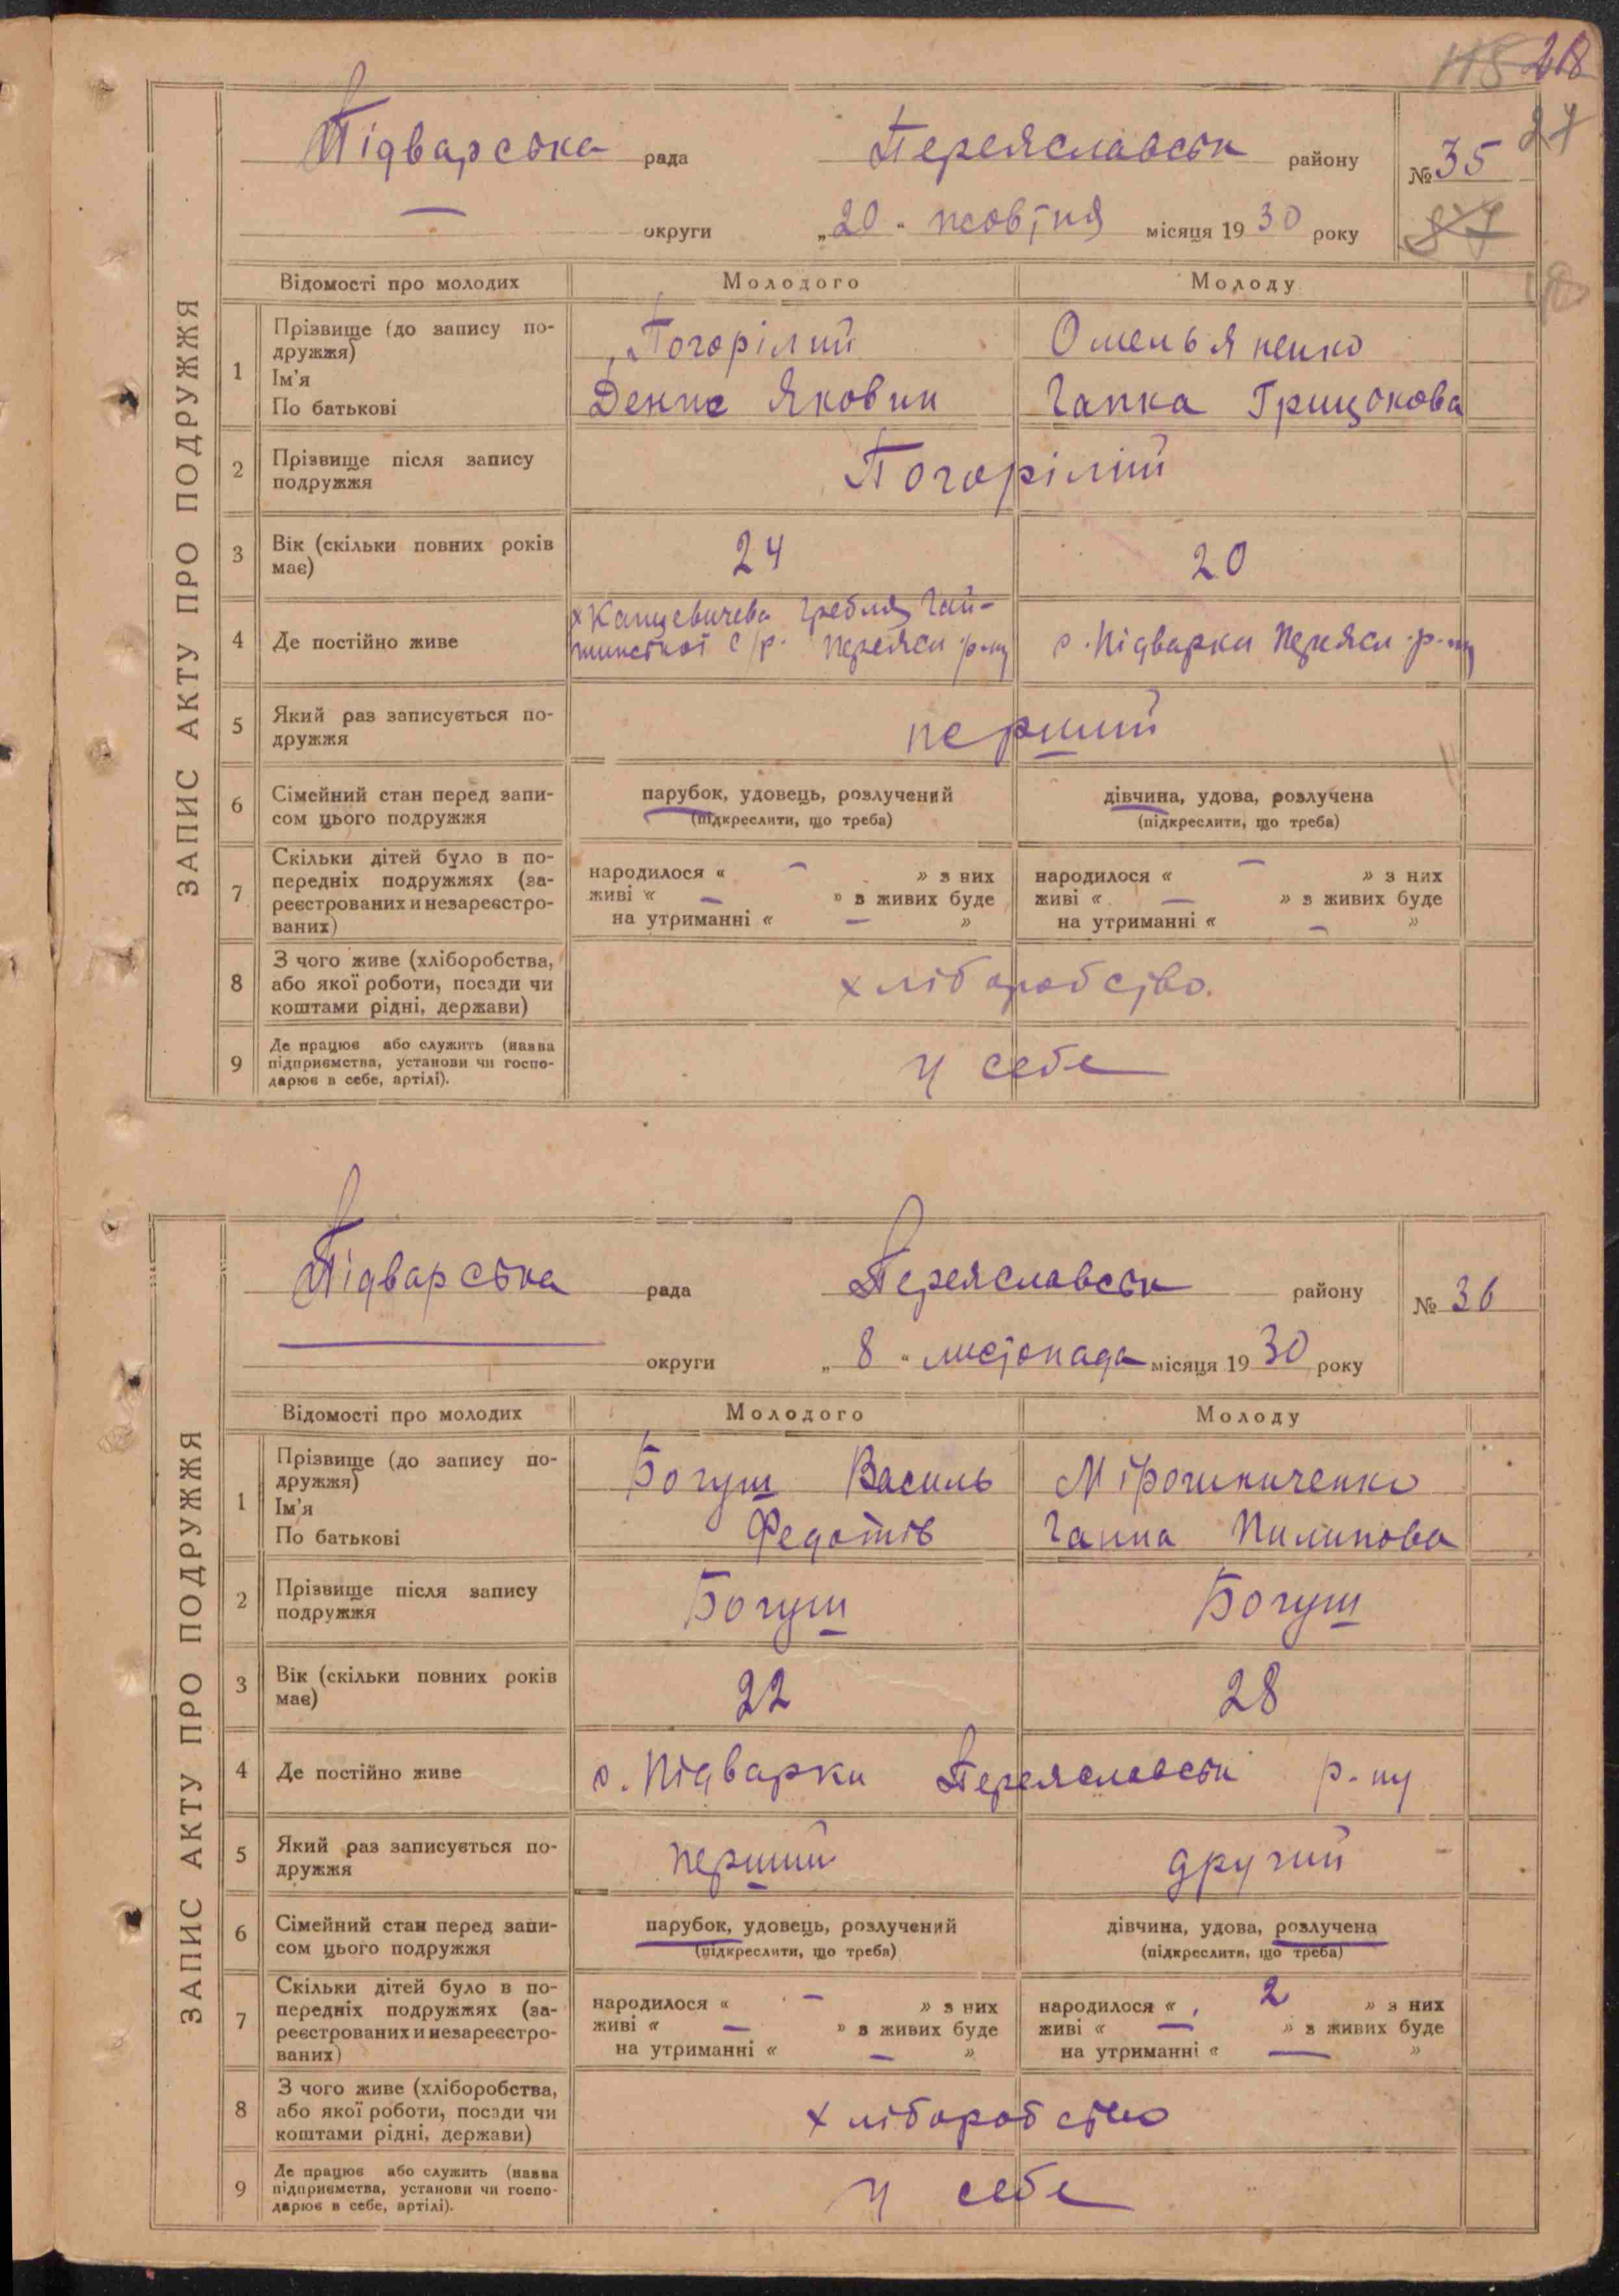 218
27
Підварська рада Переяславськ району № 35
— округи „20" жовтня місяця 1930 року 87
ЗАПИС АКТУ ПРО ПОДРУЖЖЯ
Відомості про молодих Молодого Молоду
1 Прізвище (до запису по-
дружжя)
Ім'я
По батькові
Погорілий
Денис Якович
Омельяненко
Гапка Грицокова
2 Прізвище після запису
подружжя
Погорілий
3 Вік (скільки повних років
має)
24 20
4 Де постійно живе
х Канцевичева Гребля Гай-
шинської с/р. Переясл р-ну
с. Підварки Переясл. р-ну
5 Який раз записується по-
дружжя
перший
6 Сімейний стан перед запи-
сом цього подружжя
парубок, удовець, розлучений
(підкреслити, що треба)
дівчина, удова, розлучена
(підкреслити, що треба)
7 Скільки дітей було в по-
передніх подружжях (за-
реєстрованих и незареєстро-
ваних)
народилося « — » з них
живі « — » з живих буде
на утриманні « — »
народилося « — » з них
живі « — » з живих буде
на утриманні « — »
8 З чого живе (хліборобства,
або якої роботи, посади чи
коштами рідні, держави)
хліборобство.
9 Де працює або служить (назва
підприємства, установи чи госпо-
дарює в себе, артілі).
у себе
Підварська рада Переяславськ району № 36
— округи „8" листопада місяця 1930 року
ЗАПИС АКТУ ПРО ПОДРУЖЖЯ
Відомості про молодих Молодого Молоду
1 Прізвище (до запису по-
дружжя)
Ім'я
По батькові
Богуш Василь
Федотів
Мірошниченко
Ганна Пилипова
2 Прізвище після запису
подружжя
Богуш Богуш
3 Вік (скільки повних років
має)
22 28
4 Де постійно живе
с. Підварки Переяславськ р-ну
5 Який раз записується по-
дружжя
перший другий
6 Сімейний стан перед запи-
сом цього подружжя
парубок, удовець, розлучений
(підкреслити, що треба)
дівчина, удова, розлучена
(підкреслити, що треба)
7 Скільки дітей було в по-
передніх подружжях (за-
реєстрованих и незареєстро-
ваних)
народилося « — » з них
живі « — » з живих буде
на утриманні « — »
народилося « 2 » з них
живі « — » з живих буде
на утриманні « — »
8 З чого живе (хліборобства,
або якої роботи, посади чи
коштами рідні, держави)
хліборобство
9 Де працює або служить (назва
підприємства, установи чи госпо-
дарює в себе, артілі).
у себе